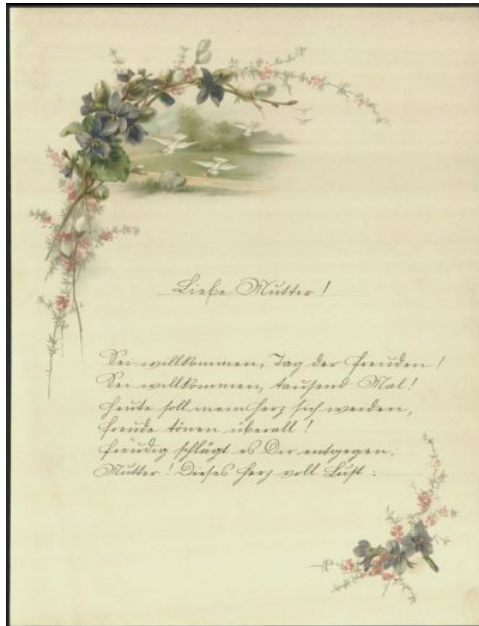 Liebe Mutter!
Sei willkommen, Tag der Freuden!
Sei willkommen, tausend Mal!
Heute soll mein Herz sich weiden,
Freude tönen überall!
Freudig schlägt es Dir entgegen,
Mutter! Dieses Herz voll Lust: